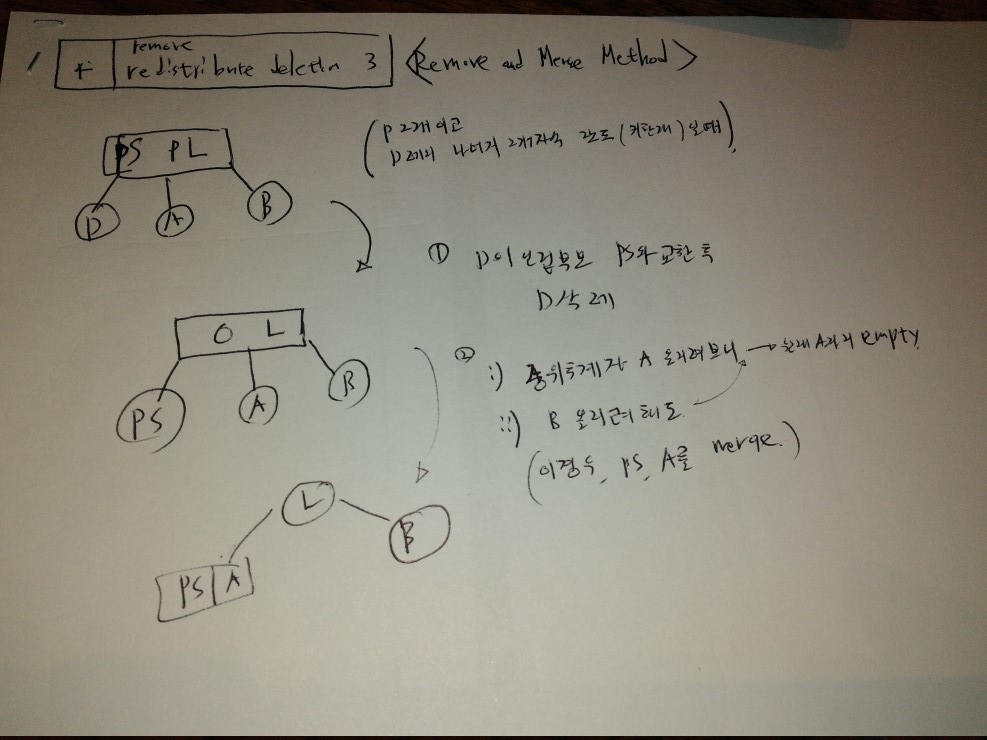 + remove
redistribute deletin 3 <Remove and Merge Method>
(P 2개이고
D 제외 나머지 2개자식 각도 (키한개) 일때)
PS PL
D A B
① D의 인접부모 PS와 교환 후
D 삭제
O L
PS A B
②
i) 중위후계자 A 올려보니 → 현재 A자리 empty
ii) B 올리려 해도
(이경우, PS, A를 merge.)
L
B
PS A